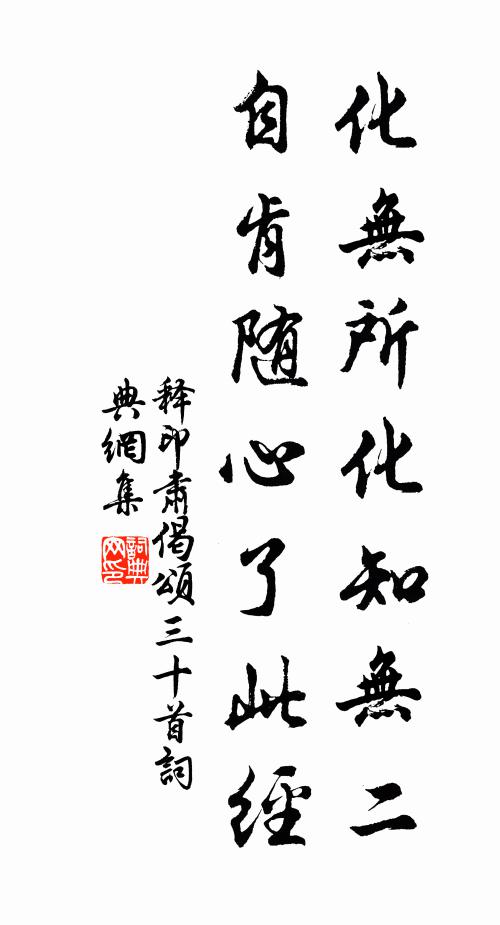 化無所化知無二
自肯随心了此經
释印肃偈頌三十首詞
典網集
詞典網印